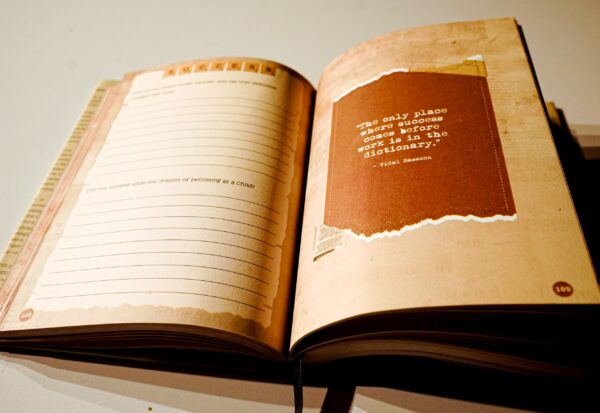 SUCCESS
Did you achieve what you dreamt of becoming as a child?
"The only place
where success
comes before
work is in the
dictionary."
- Vidal Sassoon
189